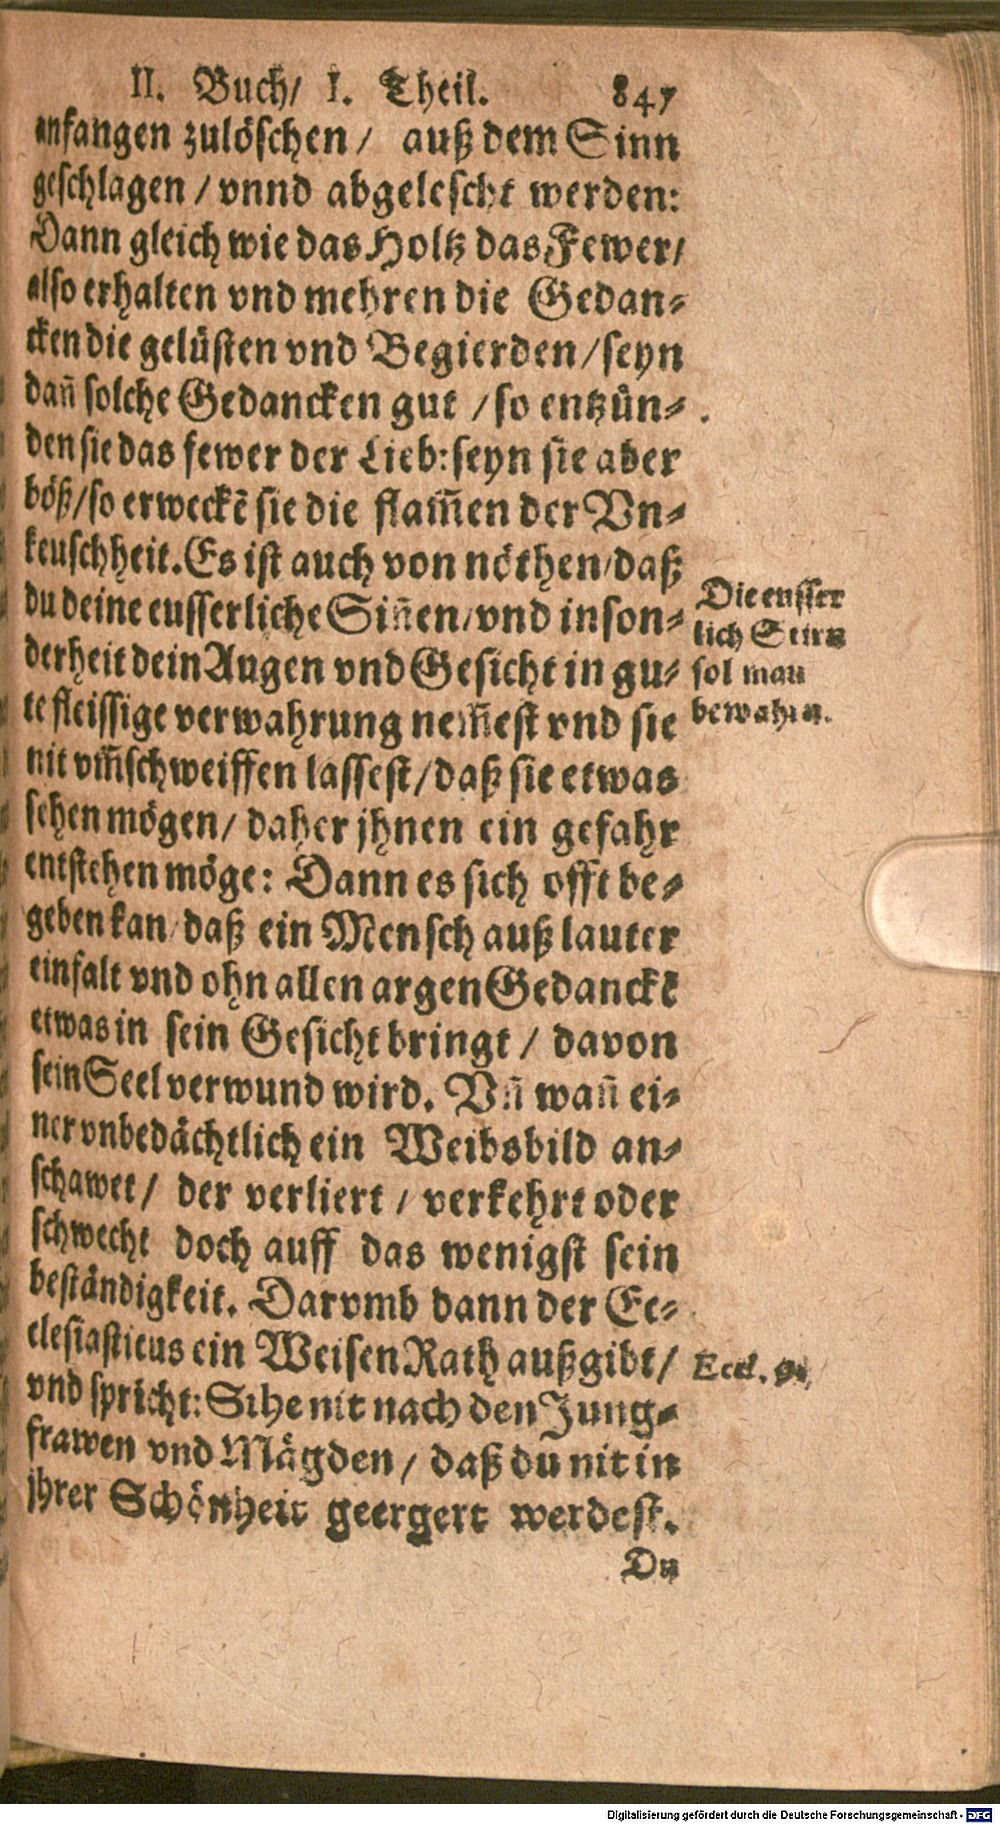 II. Buch/ I. Theil. 847
anfangen zulöschen / auß dem Sinn
geschlagen / vnnd abgelescht werden:
Dann gleich wie das Holtz das Fewer/
also erhalten vnd mehren die Gedan-
cken die gelüsten vnd Begierden/ seyn
dañ solche Gedancken gut / so entzün-
den sie das fewer der Lieb: seyn sie aber
böß/ so erweckẽ sie die flam̃en der Vn-
keuschheit. Es ist auch von nöthen/ daß
du deine eusserliche Siñen/ vnd inson-
derheit dein Augen vnd Gesicht in gu-
te fleissige verwahrung nem̃est vnd sie
nit vm̃schweiffen lassest/ daß sie etwas
sehen mögen/ daher jhnen ein gefahr
entstehen möge: Dann es sich offt be-
geben kan/ daß ein Mensch auß lauter
einfalt vnd ohn allen argen Gedanckẽ
etwas in sein Gesicht bringt / davon
sein Seel verwund wird. Vñ wañ ei-
ner vnbedächtlich ein Weibsbild an-
schawet/ der verliert / verkehrt oder
schwecht doch auff das wenigst sein
beständigkeit. Darvmb dann der Ec-
clesiasticus ein Weisen Rath außgibt/
vnd spricht: Sihe nit nach den Jung-
frawen vnd Mägden / daß du nit in
jhrer Schönheit geergert werdest.
Du
Die eusser
lich Sinn
sol man
bewahrn.
Eccl. 9.
Digitalisierung gefördert durch die Deutsche Forschungsgemeinschaft - DFG